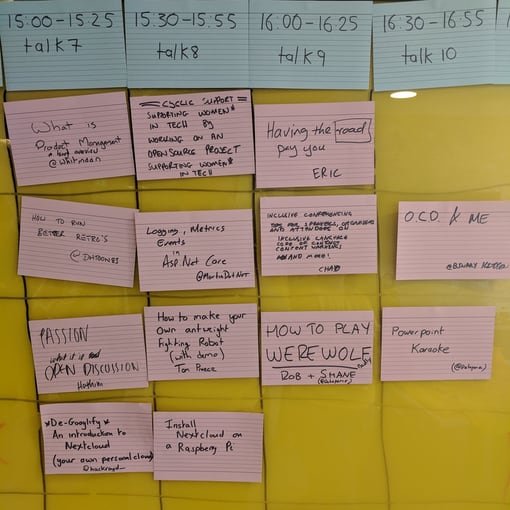 15:00-15:25
talk 7
15.30-15.55
talk 8
16.00-16.25
talk 9
16.30-16.55
talk 10
What is
Product Management
a brief overview
@whitnoan
CYCLIC SUPPORT
SUPPORTING WOMEN*
IN TECH BY
WORKING ON AN
OPEN SOURCE PROJECT
SUPPORTING WOMEN*
IN TECH
Having the road
pay you
ERIC
HOW TO RUN
BETTER RETRO'S
Logging, Metrics
Events
in
Asp.Net Core
@MartinDotNet
INCLUSIVE CONFERENCING
FOR SPEAKERS, ORGANISERS
AND ATTENDEES ON
INCLUSIVE LANGUAGE
CODE OF CONDUCT
CONTENT WARNINGS
AND MORE!
O.C.D. & ME
PASSION
what it is
OPEN DISCUSSION
How to make your
Own antweight
Fighting Robot
(with demo)
Tom
HOW TO PLAY
WEREWOLF
ROB + SHANE
Powerpoint
Karaoke
*De-Googlify*
An introduction to
Nextcloud
(your own personal cloud)
Install
Nextcloud on
a Raspberry Pi